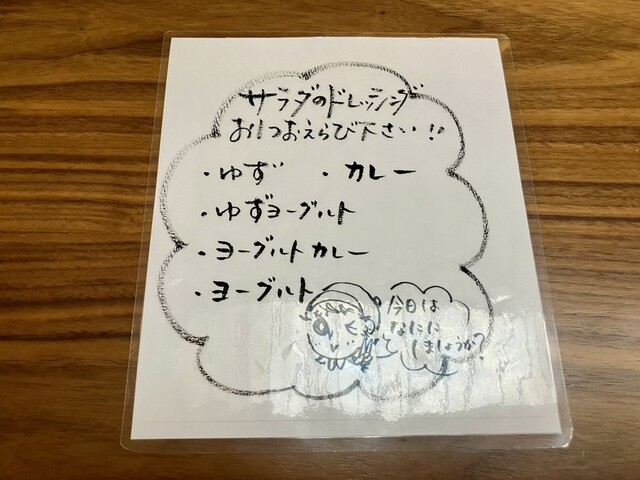 サラダのドレッシング
お1つおえらび下さい!!
・ゆず ・カレー
・ゆずヨーグルト
・ヨーグルトカレー
・ヨーグルト
今日は
なにに
しましょうか?